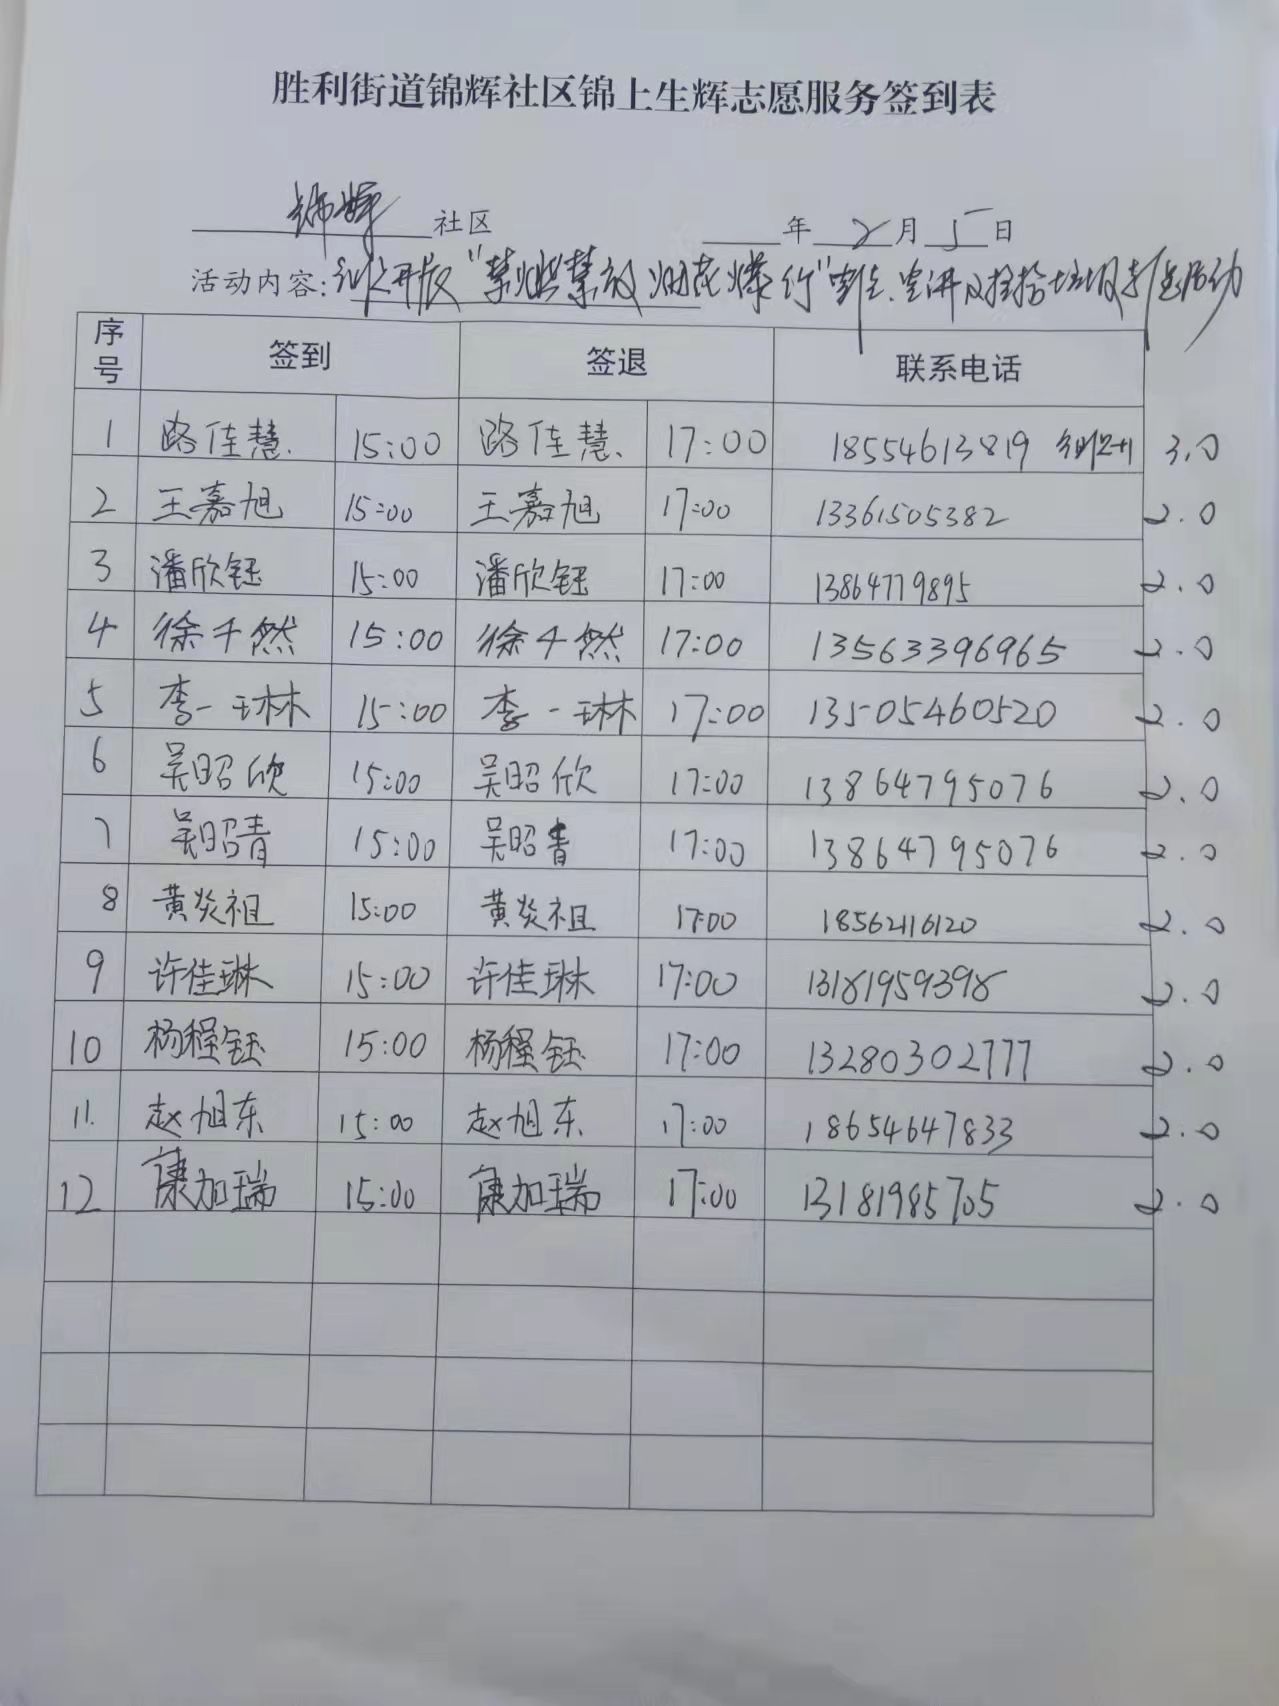 胜利街道锦辉社区锦上生辉志愿服务签到表
锦辉 社区 年 2 月 5 日
活动内容: 开展"禁燃禁放烟花爆竹"宣传、宣讲及捡拾垃圾 活动
序号 签到 签退 联系电话
1 路佳慧. 15:00 路佳慧. 17:00 18554613819 3.0
2 王嘉旭 15:00 王嘉旭 17:00 13361505382 2.0
3 潘欣钰 15:00 潘欣钰 17:00 13864779895 2.0
4 徐千然 15:00 徐千然 17:00 13563396965 2.0
5 李一琳 15:00 李一琳 17:00 13505460520 2.0
6 吴昭欣 15:00 吴昭欣 17:00 13864795076 2.0
7 吴昭青 15:00 吴昭青 17:00 13864795076 2.0
8 黄炎祖 15:00 黄炎祖 17:00 18562116120 2.0
9 许佳琳 15:00 许佳琳 17:00 13181959398 2.0
10 杨程钰 15:00 杨程钰 17:00 13280302777 2.0
11. 赵旭东 15:00 赵旭东 17:00 18654647833 2.0
12 康加瑞 15:00 康加瑞 17:00 13181985705 2.0